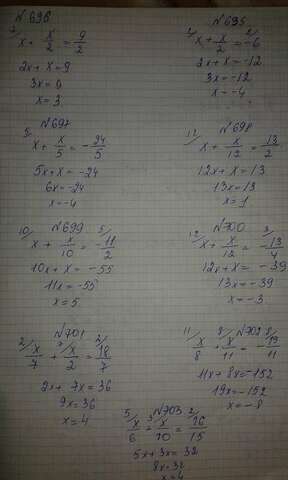 N 696
2/ x + x/2 = 9/2
2x + x = 9
3x = 9
x = 3
N 695
2/ x + x/2 = 2/ -6
2x + x = -12
3x = -12
x = -4
N 697
5/ x + x/5 = -24/5
5x + x = -24
6x = -24
x = -4
N 698
12/ x + x/12 = 13/2
12x + x = 13
13x = 13
x = 1
N 699
10/ x + x/10 = 5/ -11/2
10x + x = -55
11x = -55
x = 5
N 700
12/ x + x/12 = 3/ -13/4
12x + x = -39
13x = -39
x = -3
N 701
2/ x/7 + 7/ x/2 = 2/ 18/7
2x + 7x = 36
9x = 36
x = 4
N 702
11/ x/8 + 8/ x/11 = 8/ -19/11
11x + 8x = -152
19x = -152
x = -8
N 703
5/ x/6 + 3/ x/10 = 2/ 16/15
5x + 3x = 32
8x = 32
x = 4